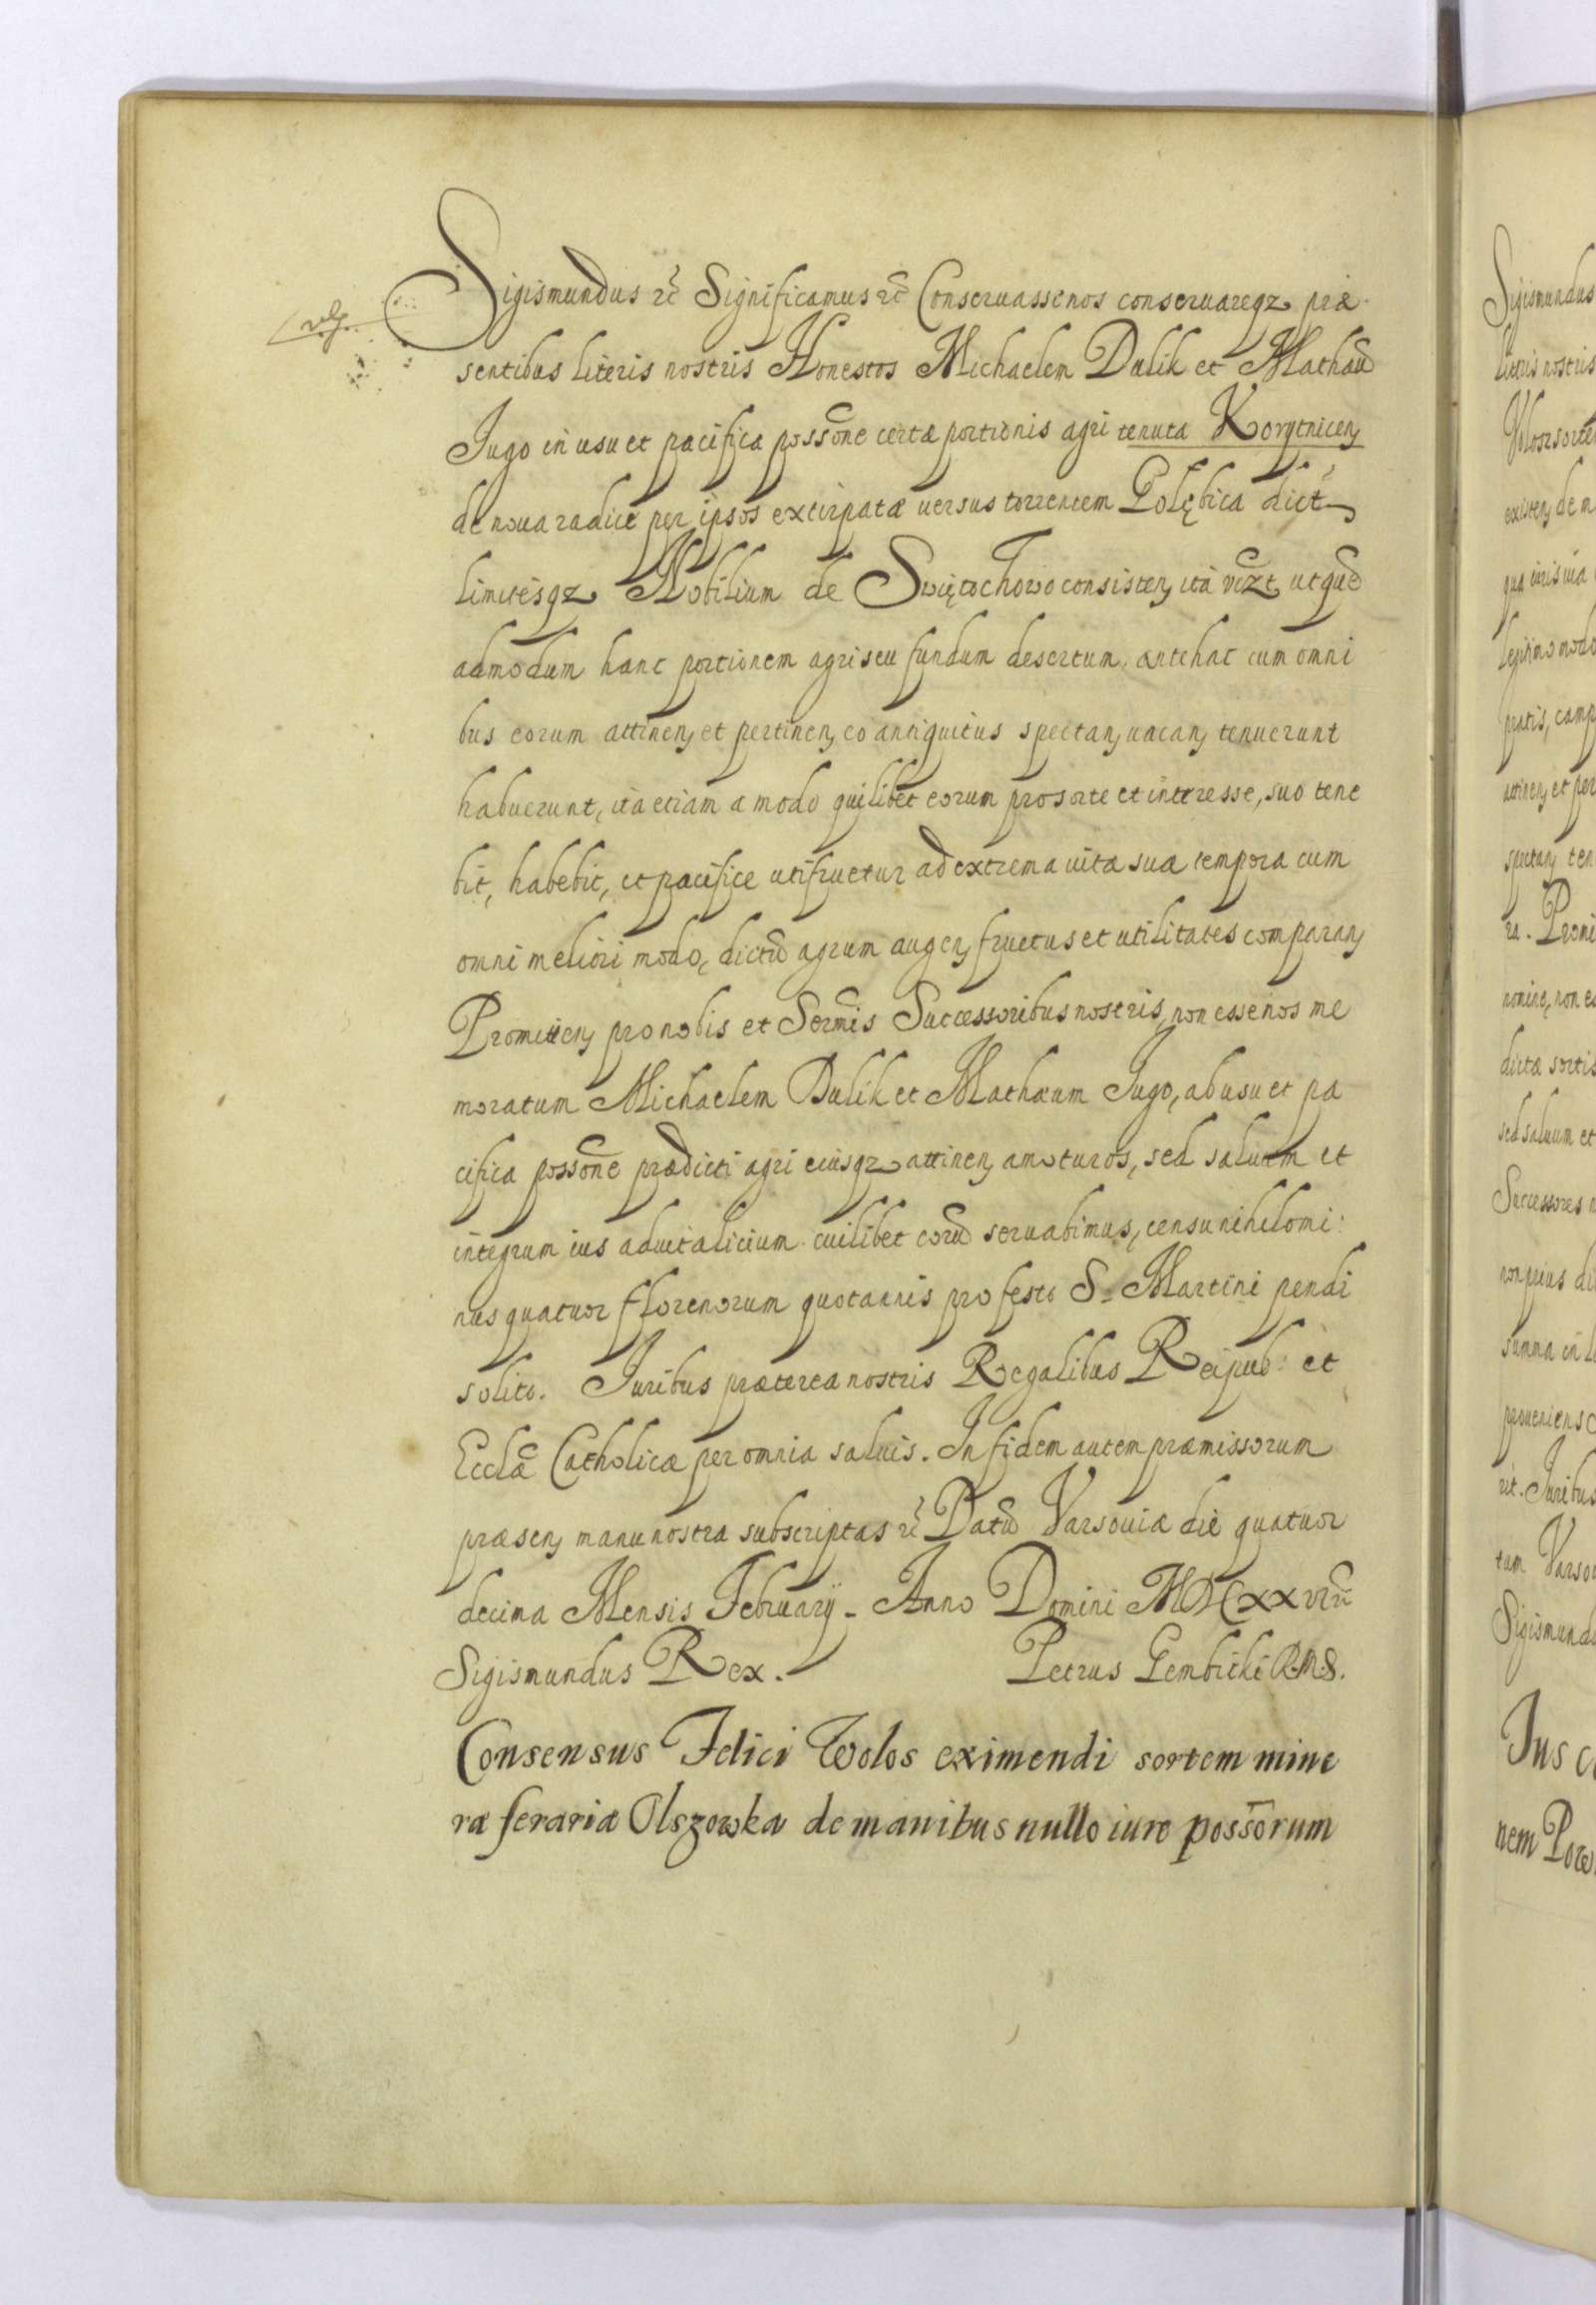 Sigismundus etc̃ Significamus etc̃ Conseruasse nos conseruareqz præ
sentibus literis nostris Honestos Michaelem Dulik et Mathæũ
Jugo in usu et pacifica possõne certæ portionis agri tenuta Korytnicen̨
de noua radice per ipsos extirpatæ uersus torrentem Golębica dict̃
limitesqz Nobilium de Swiętochowo consisten̨ ità vizt, ut quẽ
admodum hanc portionem agri seu fundum desertum, antehac cum omni
bus eorum attinen̨ et pertinen̨ eò antiquitus spectan̨ uacan̨ tenuerunt
habuerunt, ita etiam a modo quilibet eorum pro sorte et interesse, suo tene
bit, habebit, et pacifice utifruetur ad extrema uitæ suæ tempora cum
omni meliori modo, dictũ agrum augen̨ fructus et utilitates comparan̨
Promitten̨ pro nobis et Serm̃is Successoribus nostris, non esse nos me
moratum Michaelem Dulik et Mathæum Jugo, ab usu et pa
cifica possõne prædicti agri eiusqz attinen̨ amoturos, sed saluum et
integrum ius aduitalicium cuilibet eorũ seruabimus, censu nihilomi:
nus quatuor florenorum quotannis pro festo S. Martini pendi
solito. Juribus præterea nostris Regalibus Reipub: et
Ecclæ̃ Catholicæ per omnia saluis. In fidem autem præmissorum
præsen̨ manu nostra subscriptas etc̃ Datũ Varsouiæ die quatuor
decima Mensis February. Anno Domini MDCxxvii
Sigismundus Rex. Petrus Gembicki R.M.S.
Consensus Felici Wolos eximendi sortem mine
ræ ferariæ Olszowka de manibus nullo iure poss̃orum